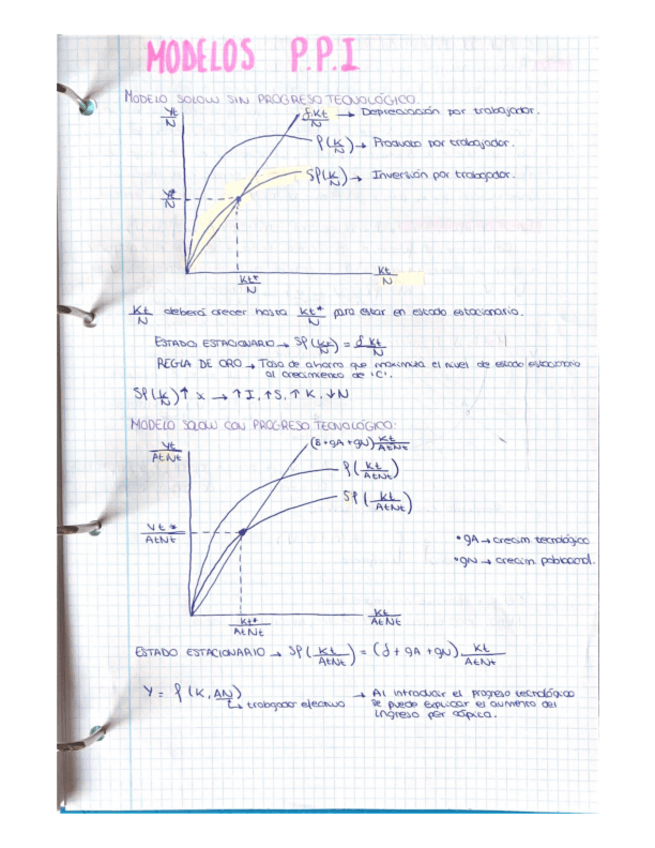 MODELOS P.P.I
MODELO SOLOW SIN PROGRESO TECNOLÓGICO
Yt/N
δKt/N → Depreciación por trabajador.
f(K/N) → Producto por trabajador.
Sf(K/N) → Inversión por trabajador.
Y*/N
Kt*/N
Kt/N
Kt/N deberá crecer hasta Kt*/N para estar en estado estacionario.
ESTADO ESTACIONARIO → Sf(Kt/N) = δ Kt/N
REGLA DE ORO → Tasa de ahorro que maximiza el nivel de estado estacionario
al crecimiento de 'C'.
Sf(K/N)↑ x → ↑I, ↑S, ↑K, ↓N
MODELO SOLOW CON PROGRESO TECNOLÓGICO:
Yt/AtNt
(δ+gA+gN) Kt/AtNt
f(Kt/AtNt)
Sf(Kt/AtNt)
Yt*/AtNt
• gA → crecim tecnológico
• gN → crecim poblacional.
Kt*/AtNt
Kt/AtNt
ESTADO ESTACIONARIO → Sf(Kt/AtNt) = (δ + gA + gN) Kt/AtNt
Y = f(K, AN)
↳ trabajador efectivo
→ Al introducir el progreso tecnológico
se puede explicar el aumento del
ingreso per cápica.